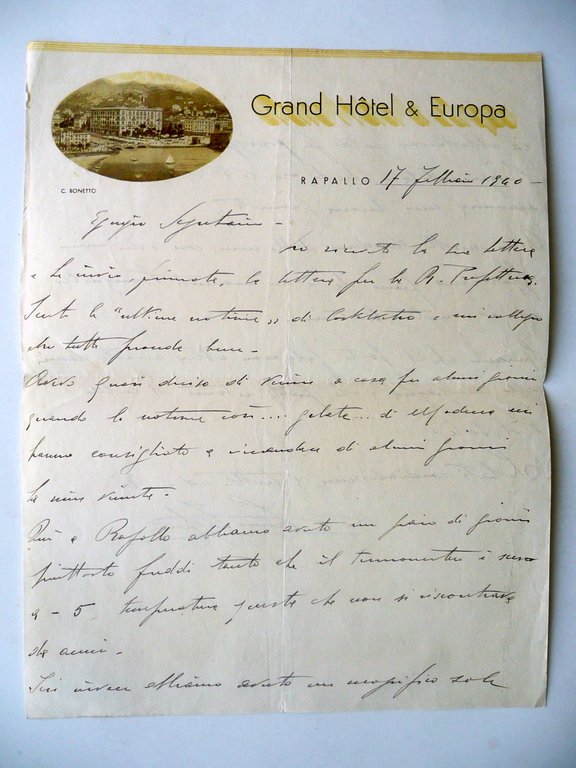 Grand Hôtel & Europa
C. BONETTO
RAPALLO 17 Febbraio 1940 -
Egregio Segretario -
ho ricevuto la sua lettera
e le invio, firmate, le lettere per la R. Prefettura.
Sento le "ultime notizie" di e mi rallegro
che tutto proceda bene -
Avevo quasi deciso di venire a casa per alcuni giorni
quando le notizie così .... gelate ... di Modena mi
hanno consigliato a rimandare di alcuni giorni
la mia venuta -
Qui a Rapallo abbiamo avuto un paio di giorni
piuttosto freddi tanto che il termometro è sceso
a - 5 temperatura questa che non si riscontrava
da anni -
Ieri invece abbiamo avuto un magnifico sole